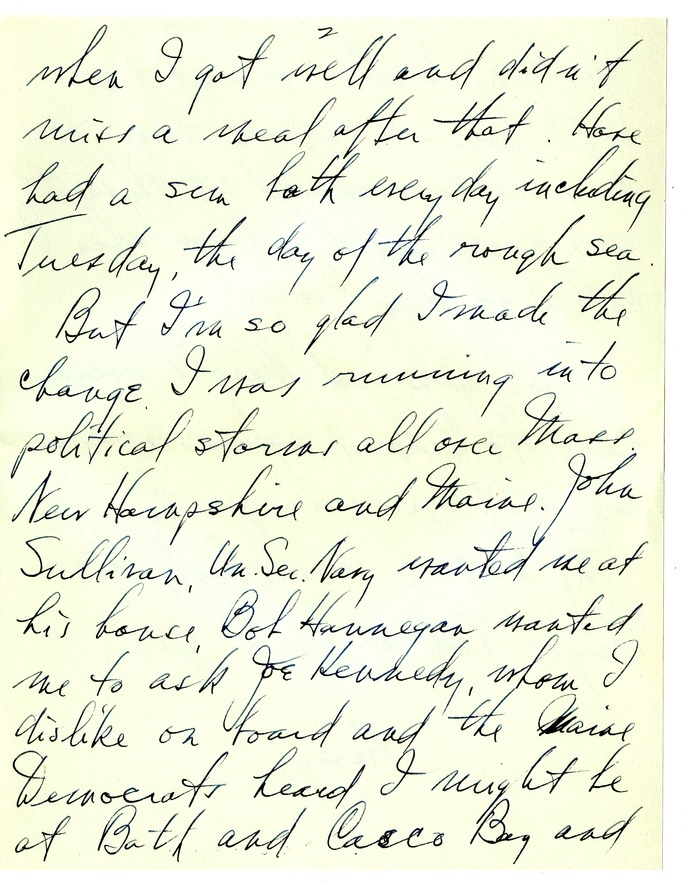 2
when I got well and didn't
miss a meal after that. Have
had a sun bath every day including
Tuesday, the day of the rough sea.
But I'm so glad I made the
change. I was running into
political storms all over Mass.
New Hampshire and Maine. John
Sullivan, Un. Sec. Navy wanted me at
his house, Bob Hannegan wanted
me to ask Joe Kennedy, whom I
dislike on board and the Maine
Democrats heard I might be
at Bath and Casco Bay and